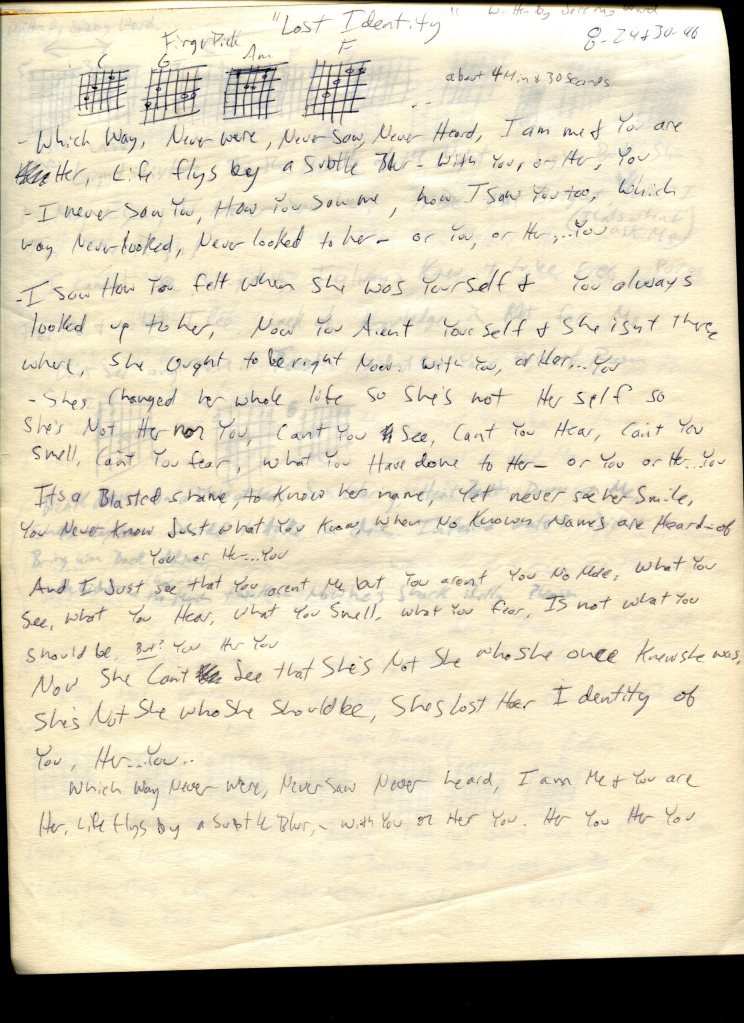 "Lost Identity" Written By Jeremy Word
8-24&30-96
FingerPick
C G Am F
about 4 Min & 30 Seconds
- Which Way, Never were, Never Saw, Never Heard, I am me & You are
Her, Life flys by a Subtle Blur - With You, or Her, You
- I never Saw You, How You Saw me, how I Saw You too, Which
way Never looked, Never looked to her - or You, or Her,...You
- I Saw How You felt when She was Yourself & You always
looked up to her, Now You Aient Yourself & She isnt there
where, She ought to be right Now. With You, or Her,...You
- Shes Changed her whole life So She's not Her self so
She's Not Her nor You, Cant You See, Cant You Hear, Can't You
Smell, Can't You fear, What You Have done to Her - or You or Her...You
Its a Blasted shame, to Know her name, Yet never see her Smile,
You Never Know Just what You Know, When No Known Names are Heard - of
You or Her...You
And I Just see that You arent Me but You arent You No More, What You
See, what You Hear, what You Smell, what You fear, Is not what You
Should be, But? You Her You
Now She Can't See that She's Not She who She once Knew she was,
She's Not She who She Should be, Shes lost Her Identity of
You, Her...You..
Which Way Never Were, Never Saw Never heard, I am Me & You are
Her, Life flys by a Subtle Blur, - with You or Her You. Her You Her You